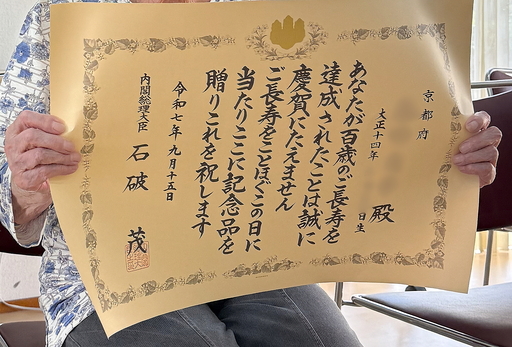 京都府
殿
大正十四年
日生
あなたが百歳のご長寿を
達成されたことは誠に
慶賀にたえません
ご長寿をことほぐこの日に
当たりここに記念品を
贈りこれを祝します
令和七年九月十五日
内閣総理大臣 石破 茂